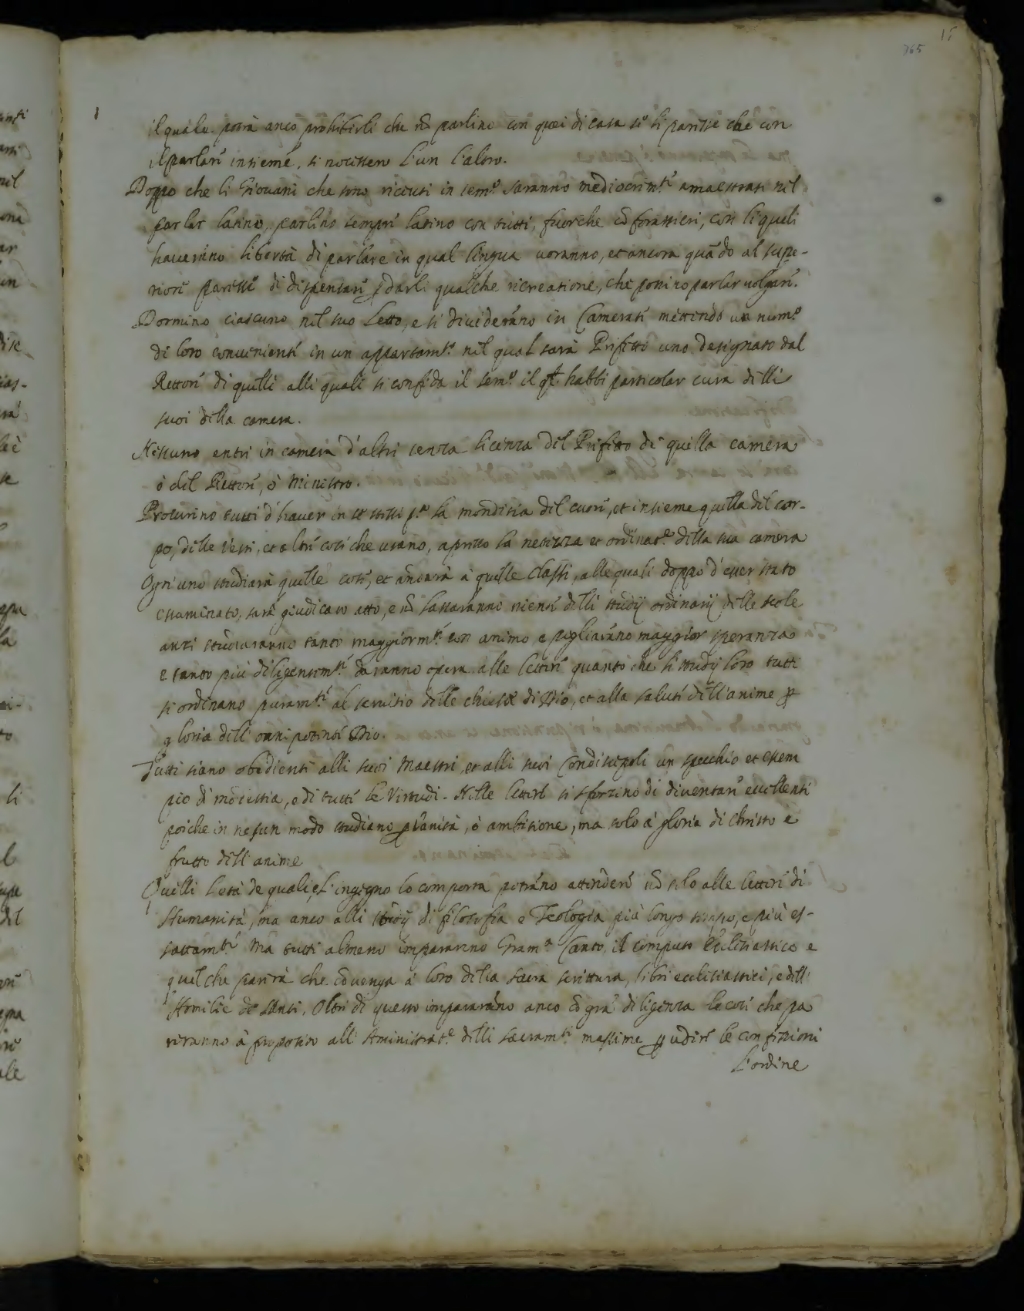 365 15
il quale potrà anco prohibirli che nõ parlino con quei di casa se li paresse che con
il parlar' insieme, si nocessero l'un l'altro.
Doppo che li Giovani che sono ricevuti in sem.º saranno mediocrim.te amaestrati nel
parlar latino, parlino sempre latino con tutti, fuorche cõ forastieri, con li quali
haveranno libertà di parlare in qual lingua voranno, et ancora quãdo al supe-
riore paresse di dispensare p darli qualche ricreatione, che possino parlar volgare.
Dormino ciascuno nel suo Letto, e si divideranno in Camerate mettendo un num.º
di loro conveniente in un appartam.to nel qual sarà Prefetto uno designato dal
Rettore di quelli alli quali si confida il sem.º il ql habbi particolar cura delli
suoi della camera.
Nessuno entri in camera d'altri senza licenza del Prefetto di quella camera
ò del Rettore, ò Ministro.
Procurino tutti d'haver in se stessi p.ª la monditia del cuore, et insieme quella del cor-
po, delle vesti, et altre cose che usano, apresso la netezza et ordinat.e della sua camera
Ogn'uno studiarà quelle cose, et andarà à quelle classi, alle quali doppo d'esser stato
essaminato, sarà giudicato atto, e nõ lassaranno niente delli studij ordinarij delle scole
anzi studiaranno tanto maggiorm.te con animo e pigliaranno maggior speranza
e tanto più diligentem.te daranno opera alle lettere quanto che li studij loro tutti
si ordinano puram.te al servitio delle chiese di Dio, et alla salute dell'anime p
gloria dell'onnipotente Dio.
Tutti siano obedienti alli suoi Maestri, et alli suoi Condiscepoli un specchio et essem
pio di modestia, e di tutte le Virtudi. Nelle lettere si sforzino di diventare eccellenti
poiche in nesun modo studiano p vanità, ò ambitione, ma solo à gloria di Christo e
frutto dell'anime
Quelli soli de quali l'ingegno lo comporta potrãno attendere nõ solo alle lettere di
Humanità, ma anco alli studij di filosofia e Teologia più longo tempo, e più es-
sattam.te Ma tutti almeno impararano Gram.ca Canto, il computo Ecclesiastico e
quel che parerà che cõvenga à loro della sacra scrittura, libri ecclesiastici, e delle
Homilie de santi, Oltre di questo impararãno anco cõ grã diligenza le cose che pa
reranno à proposito all'aministrat.e delli sacram.ti massime p udire le confessioni
L'ordine